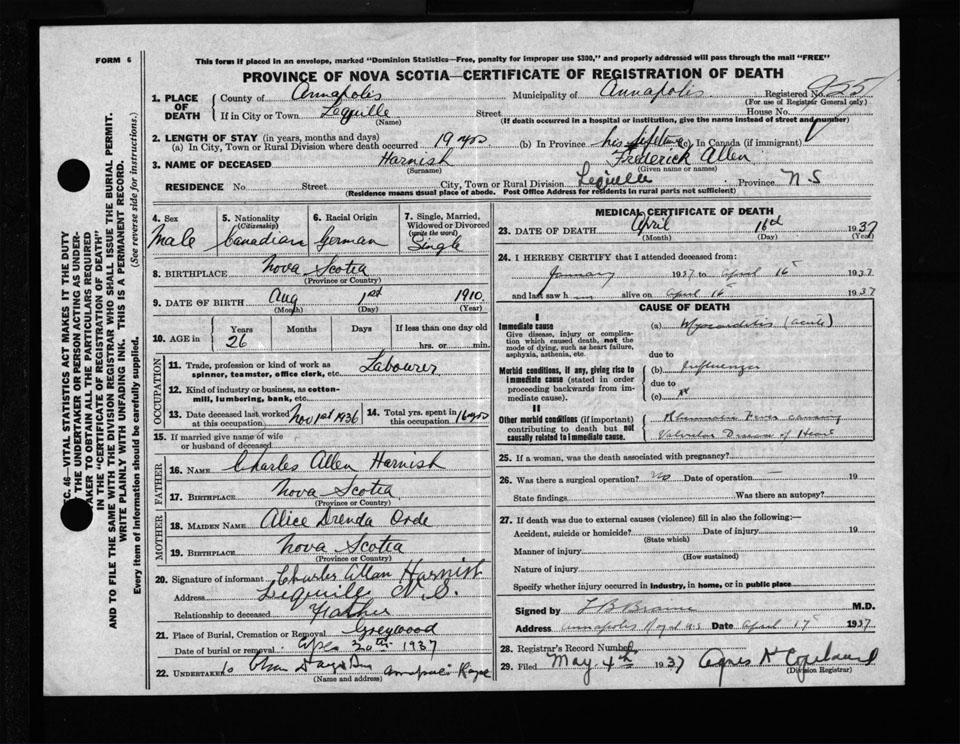 FORM 6
This form if placed in an envelope, marked "Dominion Statistics—Free, penalty for improper use $300," and properly addressed will pass through the mail "FREE"
PROVINCE OF NOVA SCOTIA—CERTIFICATE OF REGISTRATION OF DEATH
1. PLACE OF DEATH
County of Annapolis Municipality of Annapolis Registered No.
(For use of Registrar General only)
If in City or Town Lequille Street House No.
(Name) (If death occurred in a hospital or institution, give the name instead of street and number)
2. LENGTH OF STAY (in years, months and days)
(a) In City, Town or Rural Division where death occurred 19 yrs (b) In Province his lifetime (c) In Canada (if immigrant)
3. NAME OF DECEASED Harnish Frederick Allen
(Surname) (Given name or names)
RESIDENCE No. Street City, Town or Rural Division Lequille Province N S
(Residence means usual place of abode. Post Office Address for residents in rural parts not sufficient)
4. Sex Male
5. Nationality (Citizenship) Canadian
6. Racial Origin German
7. Single, Married, Widowed or Divorced (write the word) Single
8. BIRTHPLACE Nova Scotia
(Province or Country)
9. DATE OF BIRTH Aug 1st 1910
(Month) (Day) (Year)
10. AGE in Years Months Days If less than one day old
26 hrs. or min.
OCCUPATION
11. Trade, profession or kind of work as spinner, teamster, office clerk, etc. Labourer
12. Kind of industry or business, as cotton-mill, lumbering, bank, etc.
13. Date deceased last worked at this occupation Nov 1st 1936
14. Total yrs. spent in this occupation 16 yrs
15. If married give name of wife or husband of deceased
FATHER
16. NAME Charles Allen Harnish
17. BIRTHPLACE Nova Scotia
(Province or Country)
MOTHER
18. MAIDEN NAME Alice Drenda Orde
19. BIRTHPLACE Nova Scotia
(Province or Country)
20. Signature of informant Charles Allan Harnish
Address Lequille N.S.
Relationship to deceased Father
21. Place of Burial, Cremation or Removal Greywood
Date of burial or removal 20th 1937
22. UNDERTAKER
(Name and address)
MEDICAL CERTIFICATE OF DEATH
23. DATE OF DEATH April 16th 1937
(Month) (Day) (Year)
24. I HEREBY CERTIFY that I attended deceased from:
January 1937 to April 16 1937
and last saw h im alive on April 16 1937
CAUSE OF DEATH
I
Immediate cause
Give disease, injury or complication which caused death, not the mode of dying, such as heart failure, asphyxia, asthenia, etc.
(a) Myocarditis (acute)
due to
Morbid conditions, if any, giving rise to immediate cause (stated in order proceeding backwards from immediate cause).
(b) Influenza
due to
(c)
II
Other morbid conditions (if important) contributing to death but not causally related to immediate cause.
Rheumatic Fever causing
Valvular Disease of Heart
25. If a woman, was the death associated with pregnancy?
26. Was there a surgical operation? No Date of operation 19
State findings Was there an autopsy?
27. If death was due to external causes (violence) fill in also the following:—
Accident, suicide or homicide? Date of injury 19
(State which)
Manner of injury
(How sustained)
Nature of injury
Specify whether injury occurred in industry, in home, or in public place
Signed by M.D.
Address Annapolis Royal N.S. Date April 17 1937
28. Registrar's Record Number
29. Filed May 4th 1937 Agnes H Copeland
(Division Registrar)
SEC. 46—VITAL STATISTICS ACT MAKES IT THE DUTY
OF THE UNDERTAKER OR PERSON ACTING AS UNDER-
TAKER TO OBTAIN ALL THE PARTICULARS REQUIRED
IN THE "CERTIFICATE OF REGISTRATION OF DEATH"
AND TO FILE THE SAME WITH THE DIVISION REGISTRAR WHO SHALL ISSUE THE BURIAL PERMIT.
WRITE PLAINLY WITH UNFADING INK. THIS IS A PERMANENT RECORD.
Every item of Information should be carefully supplied. (See reverse side for instructions.)